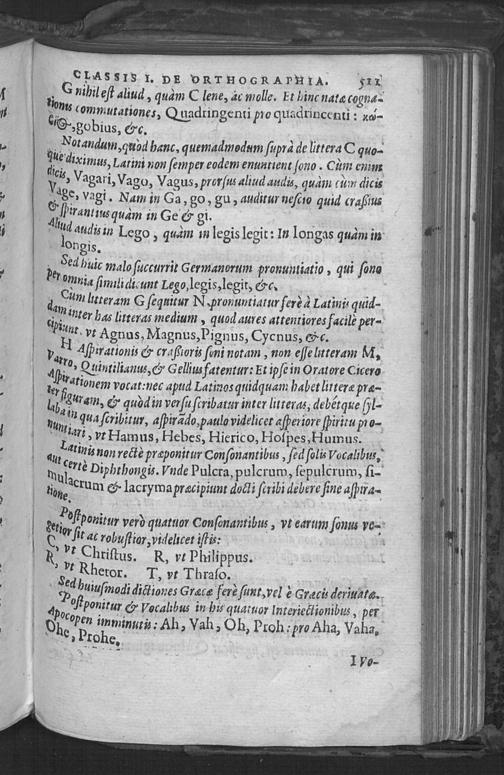 CLASSIS I. DE ORTHOGRAPHIA. 511
G nihil est aliud, quàm C lene, ac molle. Et hinc natæ cogna-
tionis commutationes, Quadringenti pro quadrincenti: κώ-
gobius, &c.
Notandum, quòd hanc, quemadmodum suprà de littera C quo-
que diximus, Latini non semper eodem enuntient sono. Cùm enim
dicis, Vagari, Vago, Vagus, prorsus aliud audis, quàm cùm dicis
Vage, vagi. Nam in Ga, go, gu, auditur nescio quid crassius
& spirantius quàm in Ge & gi.
Aliud audis in Lego, quàm in legis legit: In longas quàm in
longis.
Sed huic malo succurrit Germanorum pronuntiatio, qui sono
per omnia simili dicunt Lego, legis, legit, &c.
Cùm litteram G sequitur N, pronuntiatur ferè à Latinis quid-
dam inter has litteras medium, quod aures attentiores facilè per-
cipiunt. vt Agnus, Magnus, Pignus, Cycnus, &c.
H Aspirationis & crassioris soni notam, non esse litteram M,
Varro, Quintilianus, & Gellius fatentur: Et ipse in Oratore Cicero
Aspirationem vocat: nec apud Latinos quidquam habet litteræ præ-
ter figuram, & quòd in versu scribatur inter litteras, debétque syl-
laba in qua scribitur, aspirādo, paulo videlicet asperiore spiritu pro-
nuntiari, vt Hamus, Hebes, Hierico, Hospes, Humus.
Latinis non rectè præponitur Consonantibus, sed solis Vocalibus,
aut certè Diphthongis. Vnde Pulcra, pulcrum, sepulcrum, si-
mulacrum & lacryma præcipiunt docti scribi debere sine aspira-
tione.
Postponitur verò quatuor Consonantibus, vt earum sonus ve-
getior sit ac robustior, videlicet istis:
C, vt Christus. R, vt Philippus.
R, vt Rhetor. T, vt Thraso.
Sed huiusmodi dictiones Græcæ ferè sunt, vel è Græcis deriuatæ.
Postponitur & Vocalibus in his quatuor Interiectionibus, per
Apocopen imminutis: Ah, Vah, Oh, Proh: pro Aha, Vaha,
Ohe, Prohe.
I Vo-